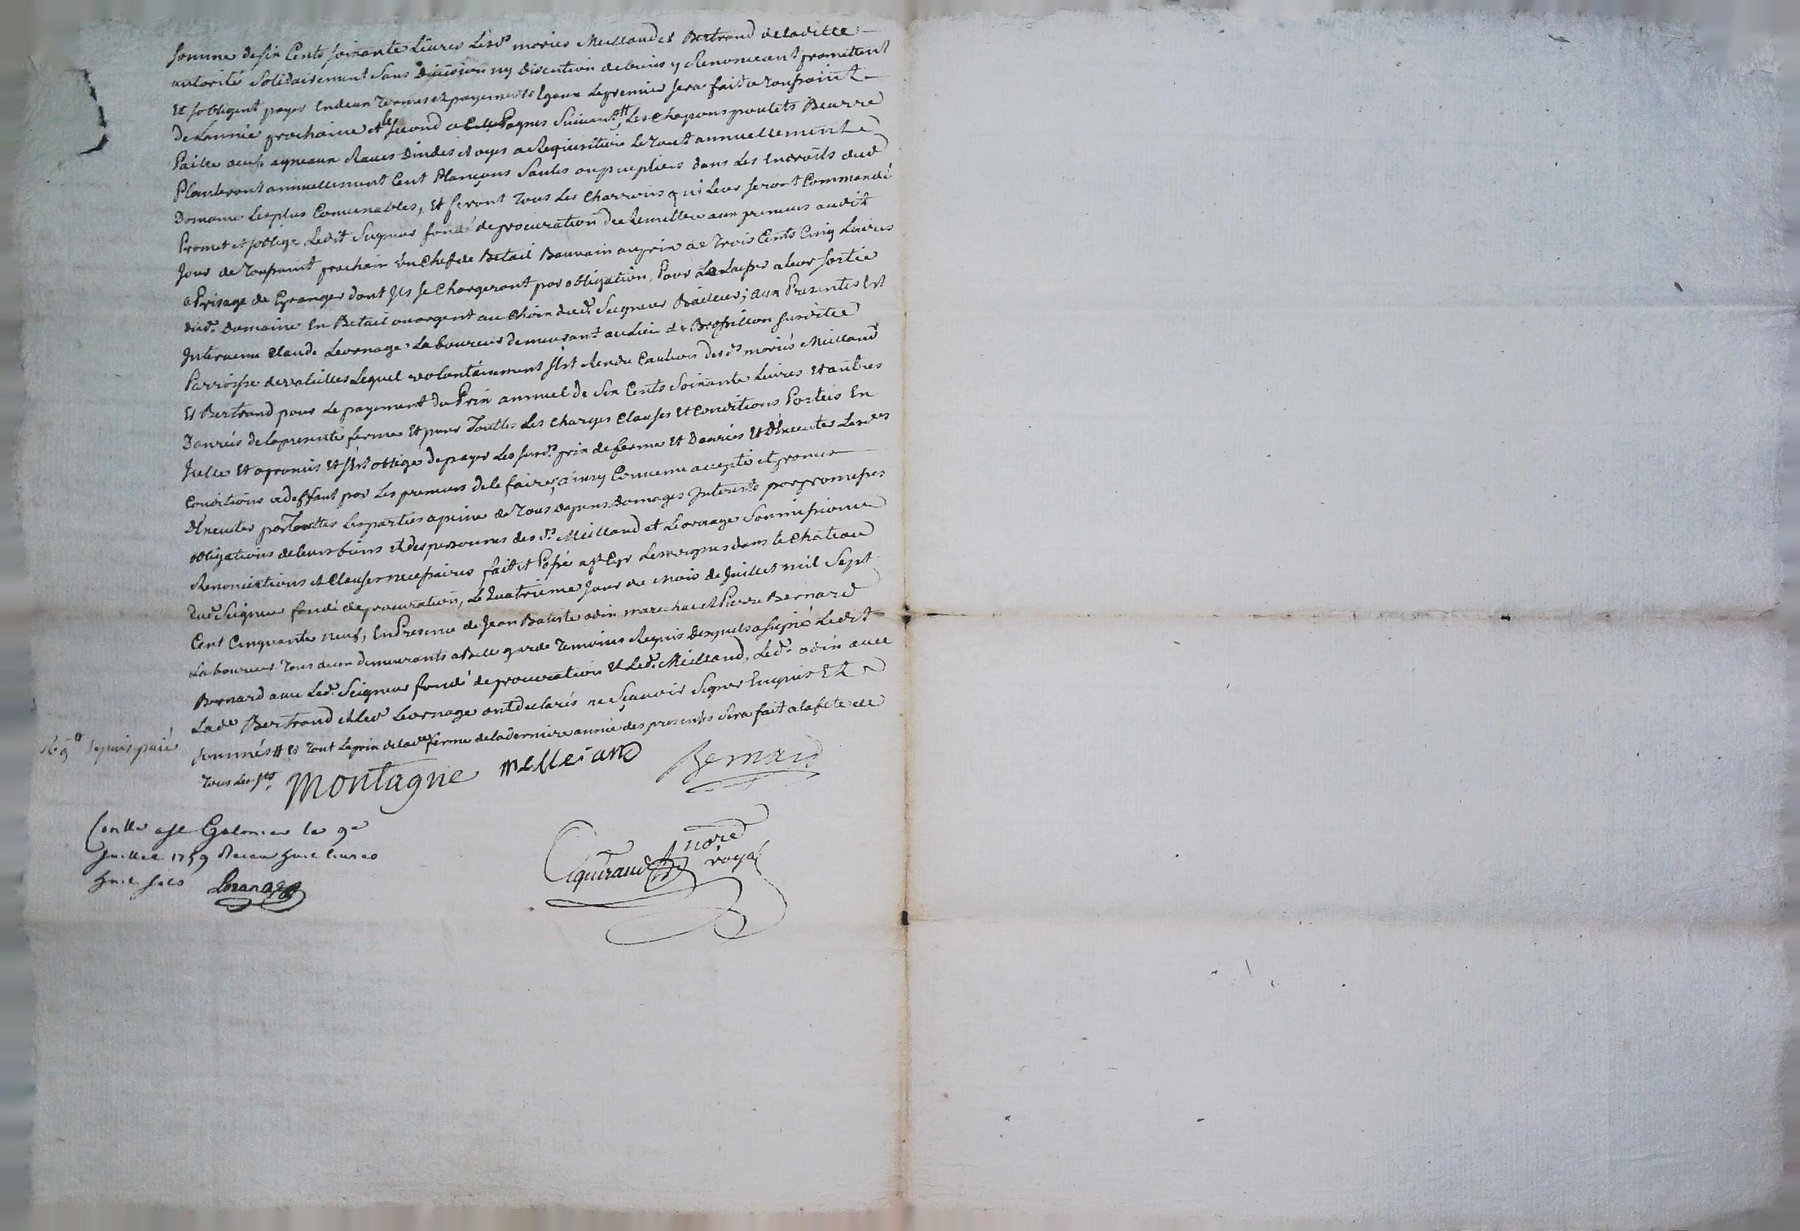 somme de six Cents soixante Livres Lesd.s mariés Meilland et Bertrand de laditte
autorité solidairement sans division ny discution de biens y Renonceant promettent
Et sobligent payer En deux termes et payements Egaux Le premier sera fait a toussaint
De Lannée prochaine et le second a Paques suivant, Les chapons poulets Beurre
Paille oeufs agneaux Raves dindes et oyes a Requisition Le tout annuellement
Planteront annuellement Cent Plançons saules ou peupliers dans Les Endroits dud
Domaine Les plus Convenables, Et feront tous Les Charrois qui Leur seront Commandé
Promet et soblige Ledit Seigneur fondé de procuration de Remettre aux preneurs audit
Jour de toussaint prochain Un Chef de Betail au prix de trois Cents Cinq Livres
a Prisage de Granger dont Ils se Chargeront par obligation, Pour Le Laisser a leur sortie
dud. Domaine En Betail ou argent au Choix dud. Seigneur Bailleur; aux Presentes Est
Intervenu Claude Leornage Laboureur demeurant au Lieu de susditte
Parroisse de Lequel volontairement sest Rendu Caution desd.s mariés Meilland
Et Bertrand pour Le payement du Prix annuel de six Cents soixante Livres Et autres
Danrées de la presente ferme Et pour Touttes Les charges Clauses Et Conditions Portées En
Icelle Et a promis Et sest obligé de payer Les susd. prix de ferme Et Danrées Et Executer Lesd.es
Conditions a deffaut par Les preneurs de le faire, ainsy Convenu accepté et promis
Executer par Touttes Les parties a peine de tous depens Domages Interets par promesses
obligations de leurs biens Et des personnes desd.s Meilland et Leornage soumissions
Renonciations et Clauses necessaires fait et Passé a st Cyr Les vignes dans le Chateau
dud Seigneur fondé de procuration, Le Quatrieme Jour du Mois de Juillet mil Sept
Cent Cinquante neuf, En Presence de Jean Batiste odin marechal et Pierre Bernard
Laboureur tous deux demeurants a Bellegarde temoins Requis Desquels a signé Ledit
Bernard avec Led. Seigneur fondé de procuration Et Led. Meilland, Led. odin avec
Lad.e Bertrand et led Leornage ont declarés ne sçavoir signer Enquis Et
sommés # Et tout Le prix de lad.e ferme de la derniere année des presentes sera fait a la fete de
tous Les sts
depuis paié
Montagne melleiand Bernard
Contlle a st Galmier le 9e
Juillet 1759 Receu huit livres
huit sols
nore
royal